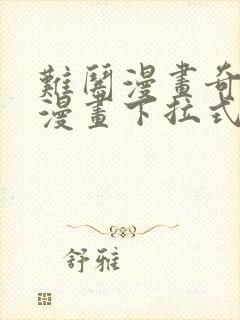 難鬧漫畫奇
漫畫下拉式
舒雅